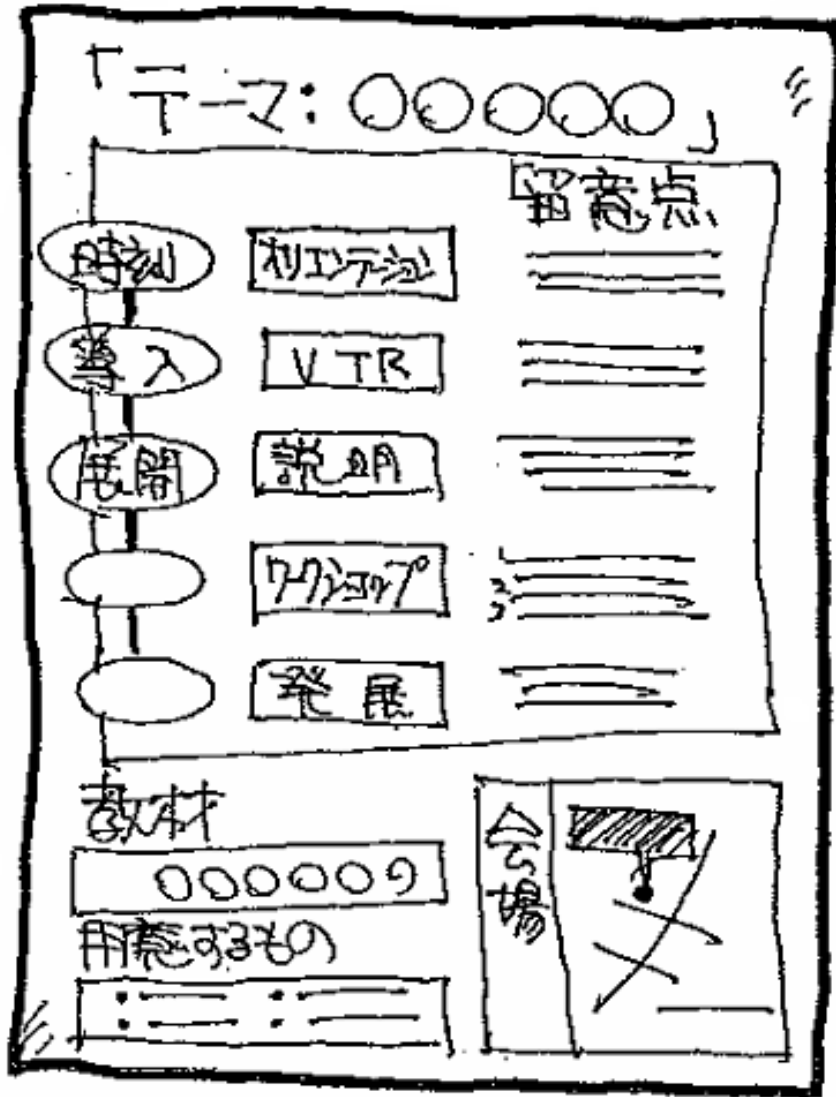 「テーマ:○○○○○」
留意点
時刻 オリエンテーション
導入 VTR
展開 説明
ワークショップ
発展
教材
○○○○○
用意するもの
会場